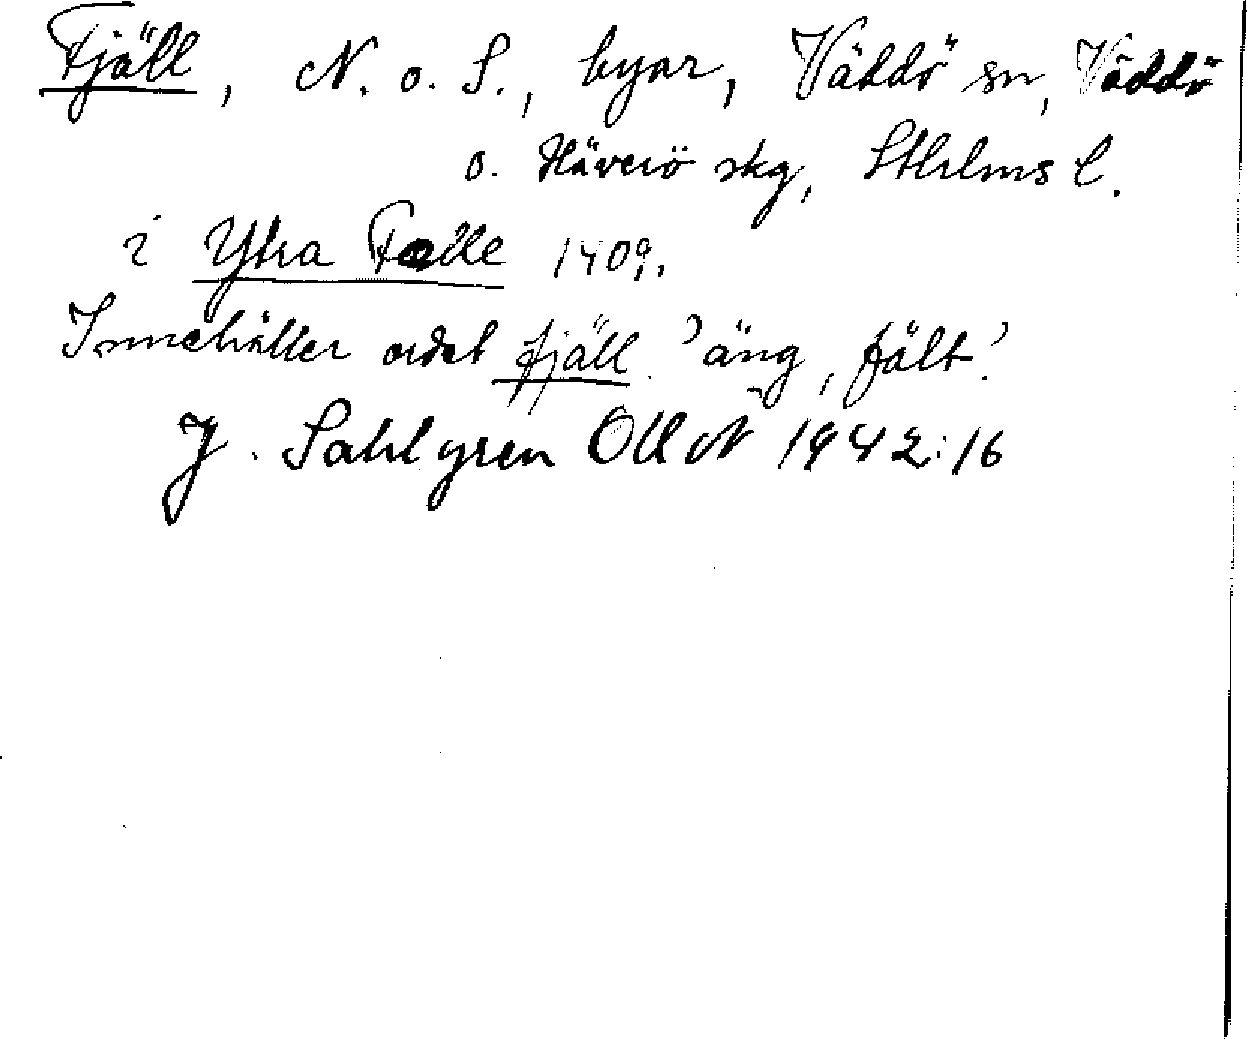 Fjäll, N. o. S., byar, Väddö sn, Väddö
o. Häverö skg, Sthlms l.
i Ytra Fælle 1409.
Innehåller ordet fjäll 'äng, fält'.
J. Sahlgren OUÅ 1942:16